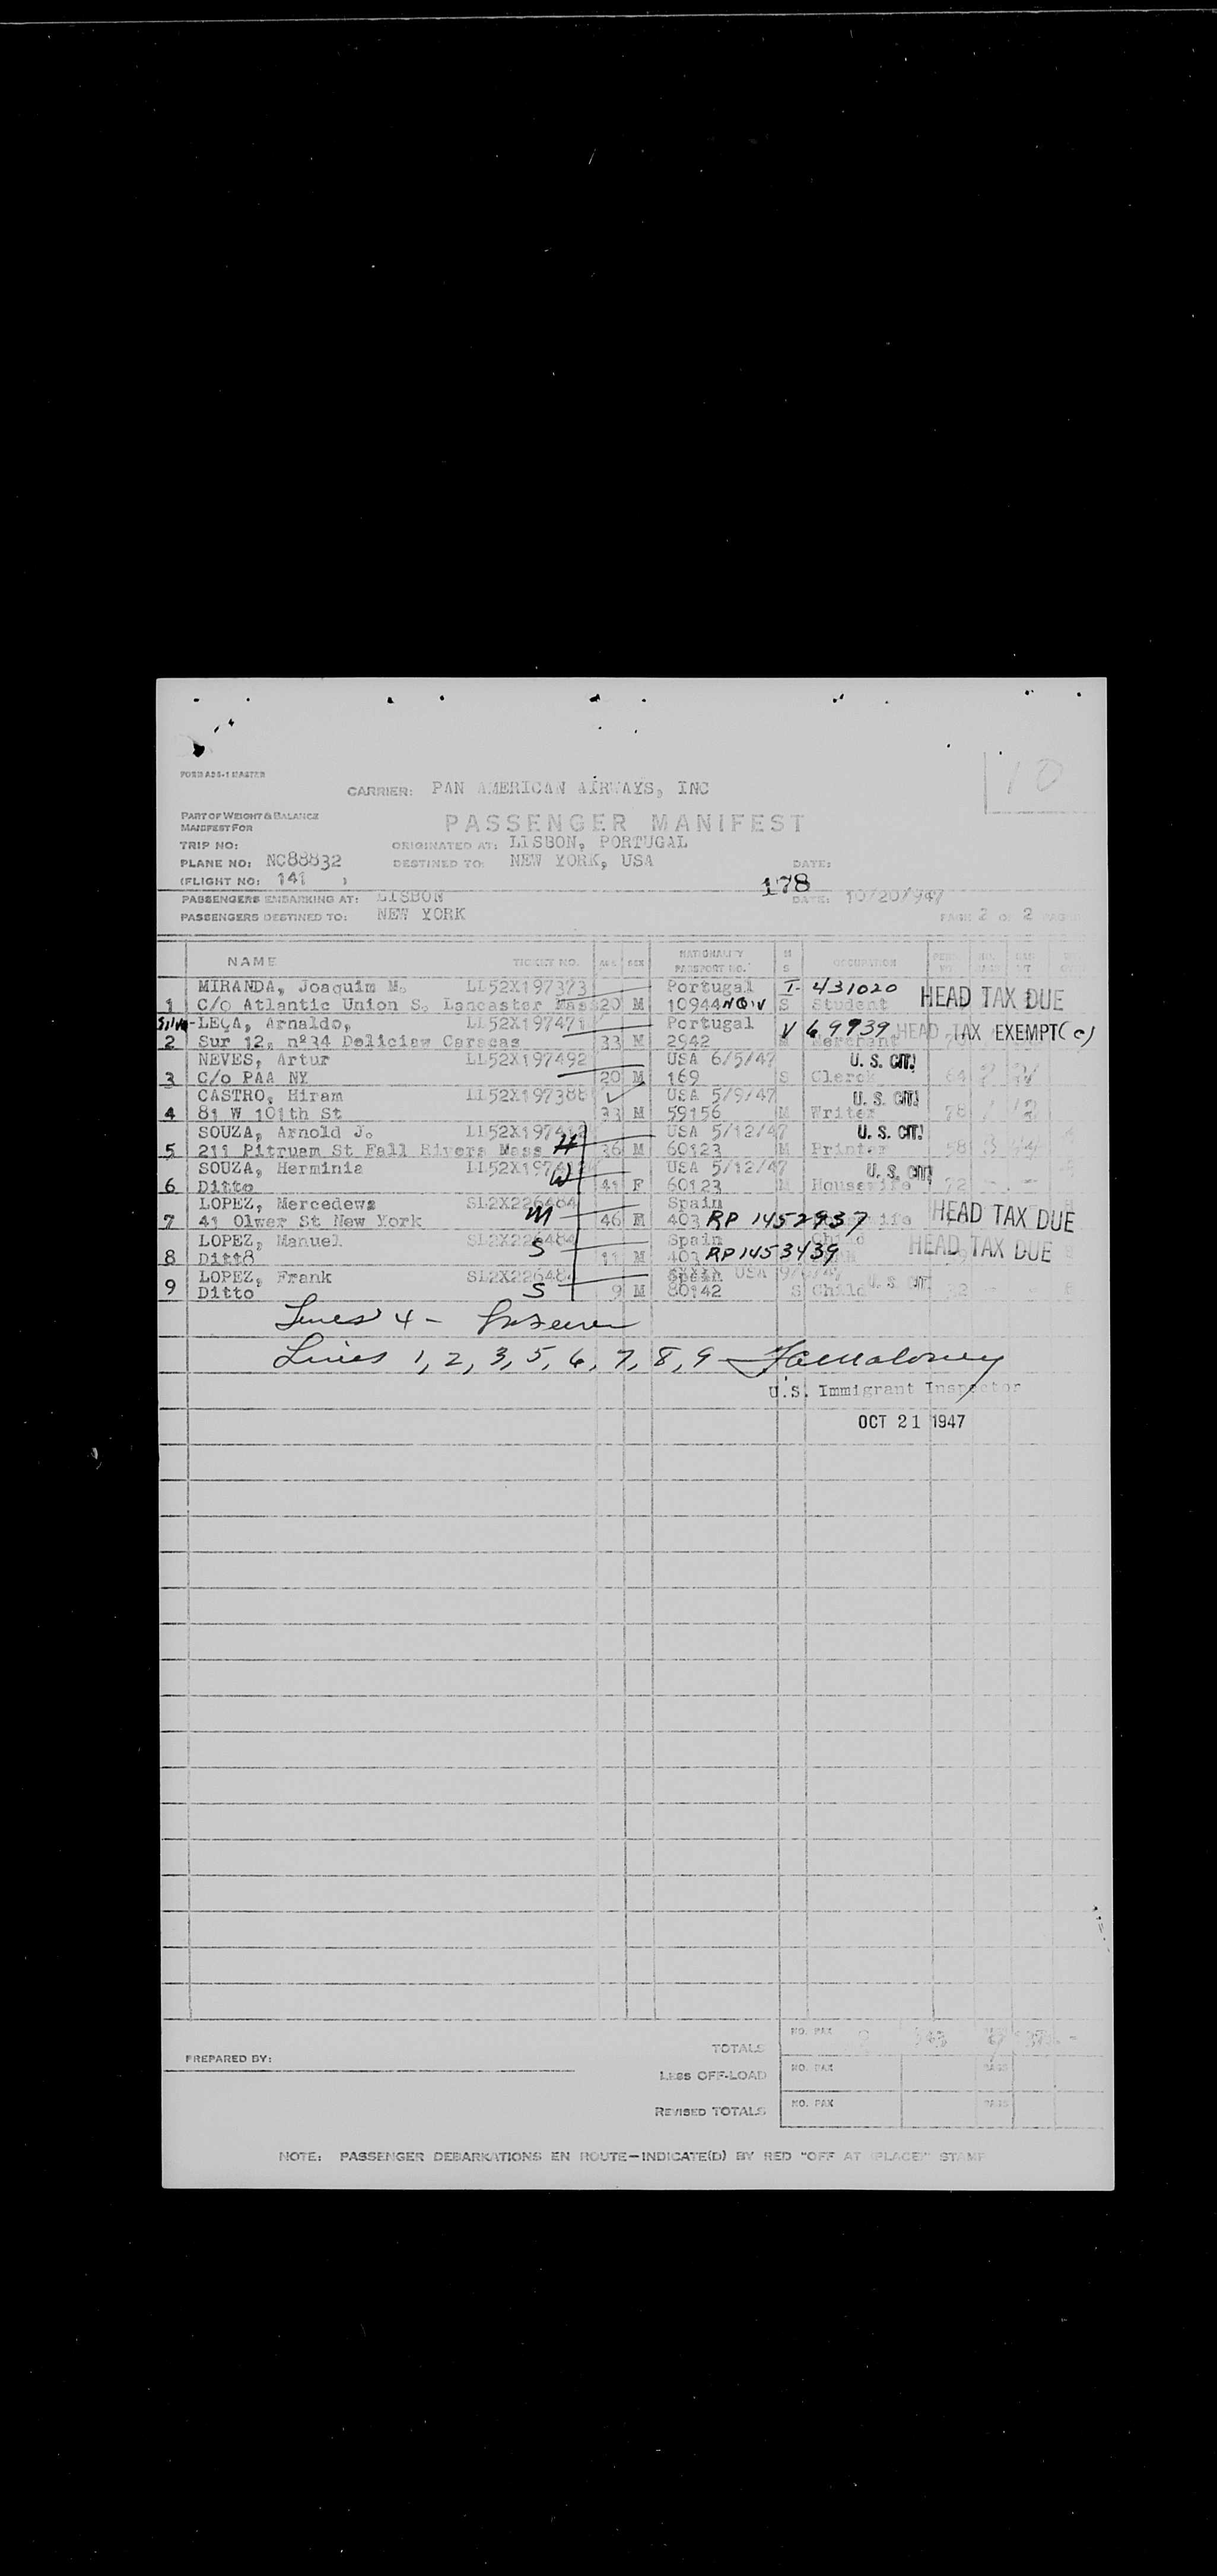 FORM ADS-1 MASTER
10
CARRIER: PAN AMERICAN AIRWAYS, INC
PART OF WEIGHT & BALANCE
MANIFEST FOR
PASSENGER MANIFEST
TRIP NO:
ORIGINATED AT: LISBON, PORTUGAL
PLANE NO: NC88832
DESTINED TO: NEW YORK, USA
DATE:
(FLIGHT NO: 141 )
178
PASSENGERS EMBARKING AT: LISBON
DATE: 10/20/947
PASSENGERS DESTINED TO: NEW YORK
PAGE 2 OF 2 PAGES
NAME TICKET NO. AGE SEX NATIONALITY PASSPORT NO. M S OCCUPATION
MIRANDA, Joaquim M. LL52X197373 Portugal I- 431020
1 C/o Atlantic Union S. Lancaster Mass 20 M 10944 NQIV S Student HEAD TAX DUE
Silva- LEÇA, Arnaldo, LL52X197471 Portugal V 69939 HEAD TAX EXEMPT(c)
2 Sur 12, nº34 Deliciaw Caracas 33 M 2942 M Merchant
NEVES, Artur LL52X197492 USA 6/5/47 U. S. CIT.
3 C/o PAA NY 20 M 169 S Clerck 64
CASTRO, Hiram LL52X197388 USA 5/9/47 U. S. CIT.
4 81 W 101th St 33 M 59156 M Writer 78
SOUZA, Arnold J. USA 5/12/47 U. S. CIT.
5 211 Pitruem St Fall Rivers Mass H 36 M 60123 M Printer 58
SOUZA, Herminia USA 5/12/47 U. S. CIT.
6 Ditto W 41 F 60123 M Housewife 72
LOPEZ, Mercedews SL2X226484 Spain
7 41 Olwer St New York M 46 403 RP 1452937 HEAD TAX DUE
LOPEZ, Manuel SL2X226484 Spain Child HEAD TAX DUE
8 Ditt8 S 11 M 403 RP1453439
LOPEZ, Frank SL2X226484 Spain USA U. S. CIT.
9 Ditto S 9 M 80142 S Child 32
Lines 4 -
Lines 1, 2, 3, 5, 6, 7, 8, 9 - Maloney
U.S. Immigrant Inspector
OCT 21 1947
TOTALS NO. PAX
PREPARED BY:
LESS OFF-LOAD NO. PAX BAGS
REVISED TOTALS NO. PAX BAGS
NOTE: PASSENGER DEBARKATIONS EN ROUTE—INDICATE(D) BY RED "OFF AT (PLACE)" STAMP